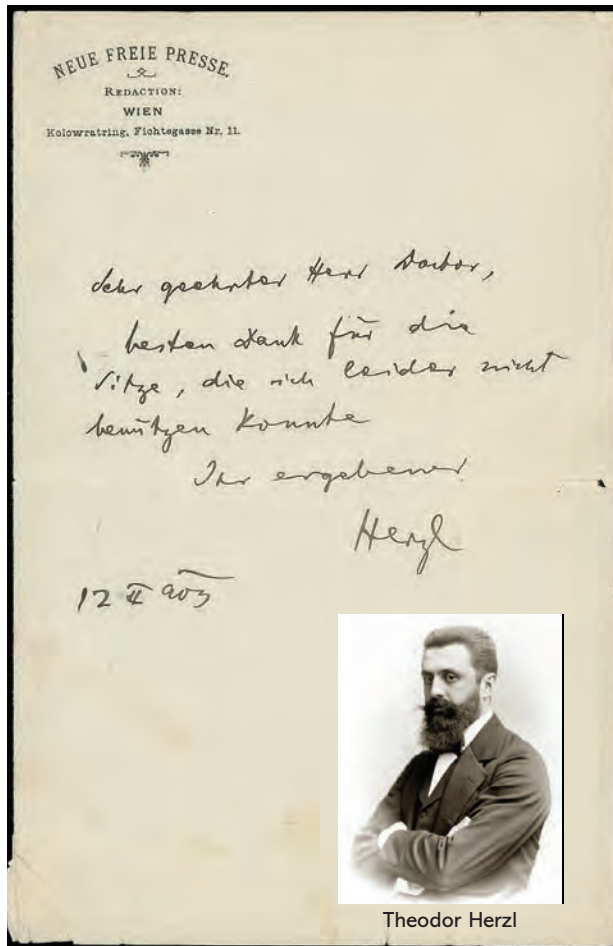 NEUE FREIE PRESSE.
REDACTION:
WIEN
Kolowratring, Fichtegasse Nr. 11.
Sehr geehrter Herr Doctor,
besten Dank für die
Sitze, die ich leider nicht
benützen konnte
Ihr ergebener
Herzl
12 II 903
Theodor Herzl